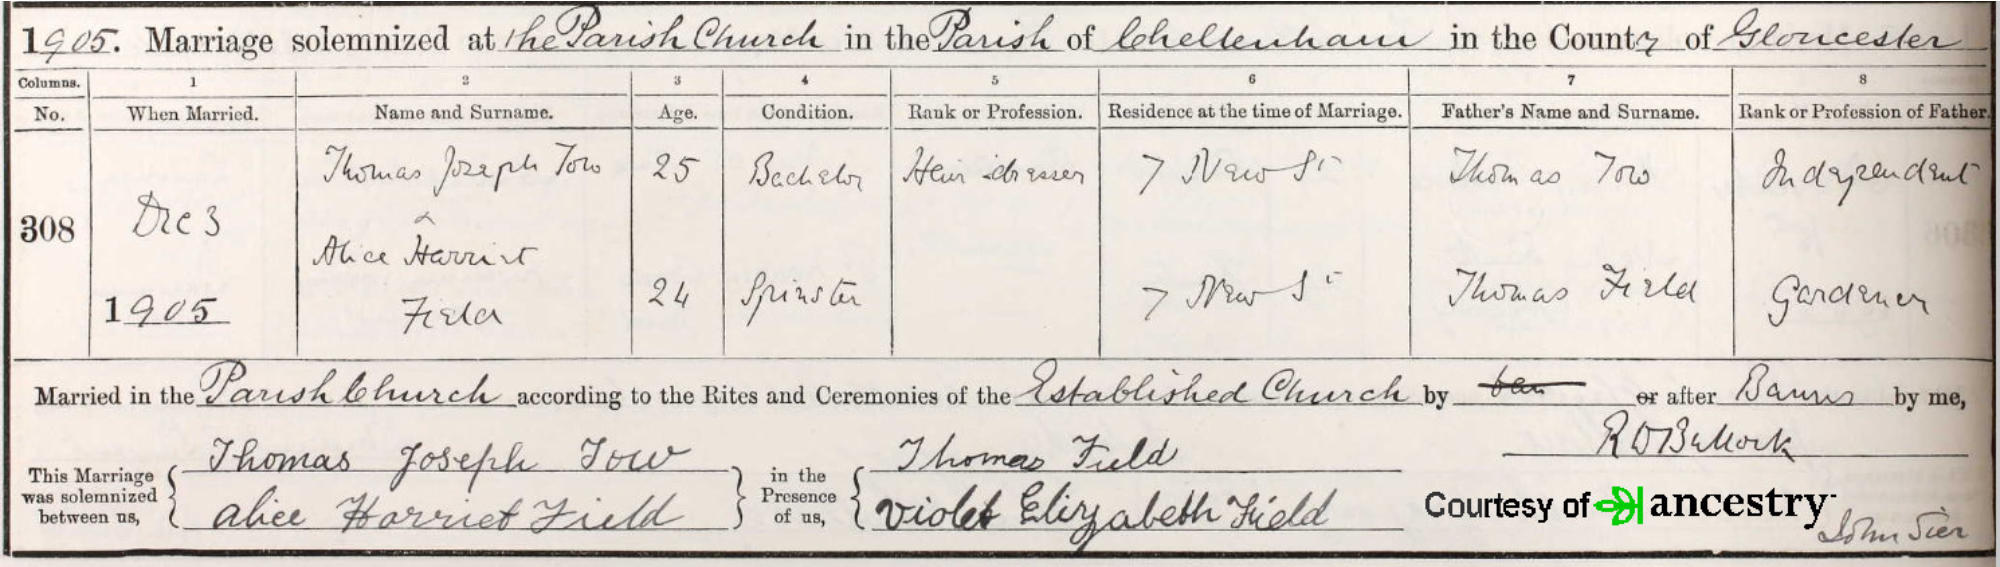 1905. Marriage solemnized at the Parish Church in the Parish of Cheltenham in the County of Gloucester
Columns. 1 2 3 4 5 6 7 8
No. When Married. Name and Surname. Age. Condition. Rank or Profession. Residence at the time of Marriage. Father's Name and Surname. Rank or Profession of Father.
Thomas Joseph Tow 25 Bachelor Hair dresser 7 New St Thomas Tow Independent
308 Dec 3
Alice Harriet
1905 Field 24 Spinster 7 New St Thomas Field Gardener
Married in the Parish Church according to the Rites and Ceremonies of the Established Church by or after Banns by me,
Thomas Joseph Tow Thomas Field
This Marriage was solemnized between us, in the Presence of us,
Alice Harriet Field Violet Elizabeth Field
Courtesy of ancestry
John Sier